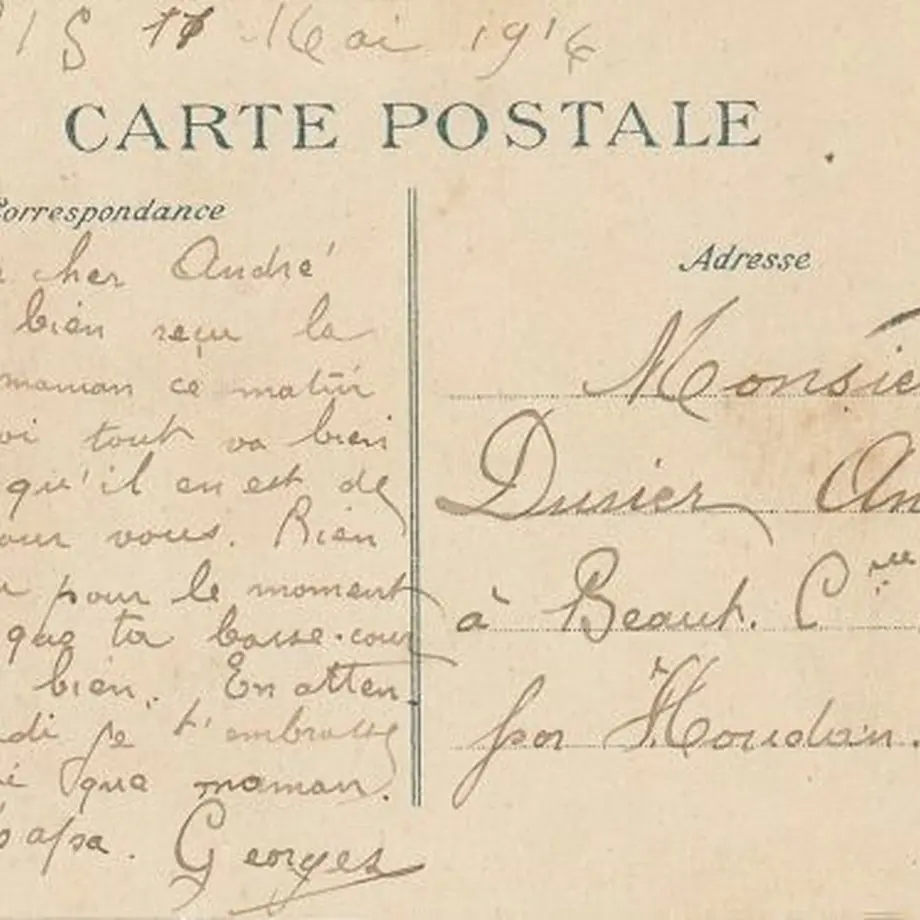 IS 11 Mai 1916
CARTE POSTALE
Correspondance
cher André
bien reçu la
maman ce matin
oi tout va bien
qu'il en est de
our vous. Rien
pour le moment
que ta basse-cour
bien. En atten
di je t'embrasse
i que maman.
papa. Georges
Adresse
Monsie
Dusier An
à Beaut. Cne
par Houdan.